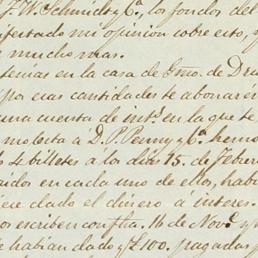 J. W. Schmidt y Cª. los fondos del
nifestado mi opinion sobre esto, y
mucho mas.
temas en la casa de Gmo. de Dru
por esas cantidades te abonarén
una cuenta de intˢ. en la que te
molesta á D. P. Penny y Cª. hemo
4 billetes a los dias 15. de Febrer
uidos en cada uno de ellos, habi
iere dado el dinero a interes.
os escriben con fha. 16 de Novᵉ. y
e habian dado y £ 100. pagadas